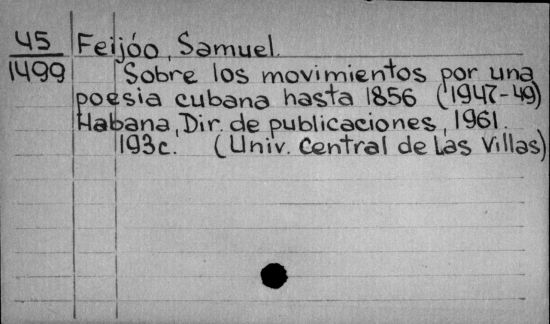 45 Feijóo, Samuel.
1499 Sobre los movimientos por una
poesia cubana hasta 1856 (1947-49)
Habana, Dir. de publicaciones, 1961.
193c. (Univ. Central de Las Villas)